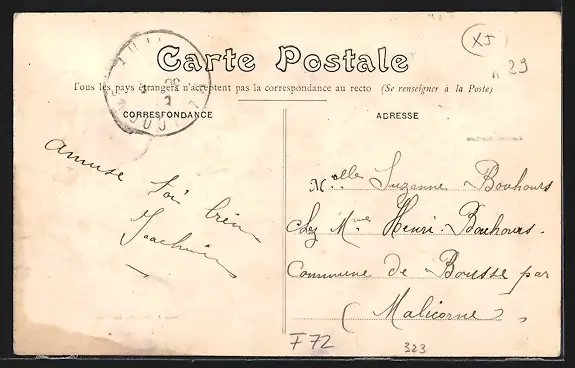 Carte Postale
Tous les pays étrangers n'acceptent pas la correspondance au recto (Se renseigner à la Poste)
CORRESPONDANCE
ADRESSE
amuse toi bien
Joachim
Melle Suzanne Bouhours
Chez Mme Henri Bouhours.
Commune de Bousse par
(Malicorne)
F 72
323
(XJ)
29